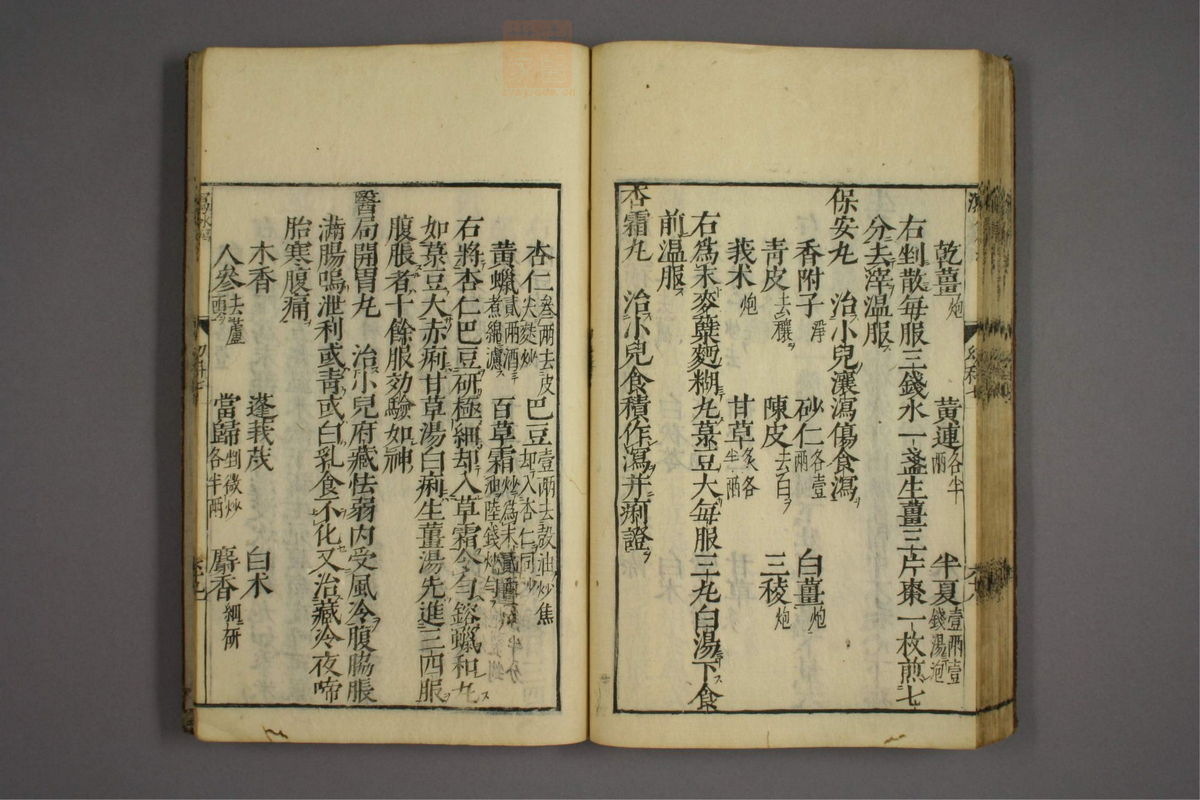 乾薑炮 黃連各半兩 半夏壹兩壹錢湯泡
右剉散每服三錢水一盞生薑三片棗一枚煎七
分去滓溫服
保安丸 治小兒瀼瀉傷食瀉
香附子淨 砂仁各壹兩 白薑炮
青皮去穰 陳皮去白 三稜炮
莪术炮 甘草炙各半兩
右爲末麥蘗麪糊丸菉豆大每服三丸白湯下食
前溫服
杏霜丸 治小兒食積作瀉并痢證
杏仁叄兩去皮尖麩炒 巴豆壹兩去殼油炒焦却入杏仁同炒
黃蠟貳兩酒煮綿濾 百草霜炒爲末
右將杏仁巴豆研極細却入草霜令勻鎔蠟和丸
如菉豆大赤痢甘草湯白痢生薑湯先進三四服
腹脹者十餘服効驗如神
醫局開胃丸 治小兒府藏怯弱內受風冷腹脇脹
滿腸鳴泄利或青或白乳食不化又治藏冷夜啼
胎寒腹痛
木香 蓬莪茂 白术
人參去蘆頭 當歸剉微炒各半兩 麝香細研